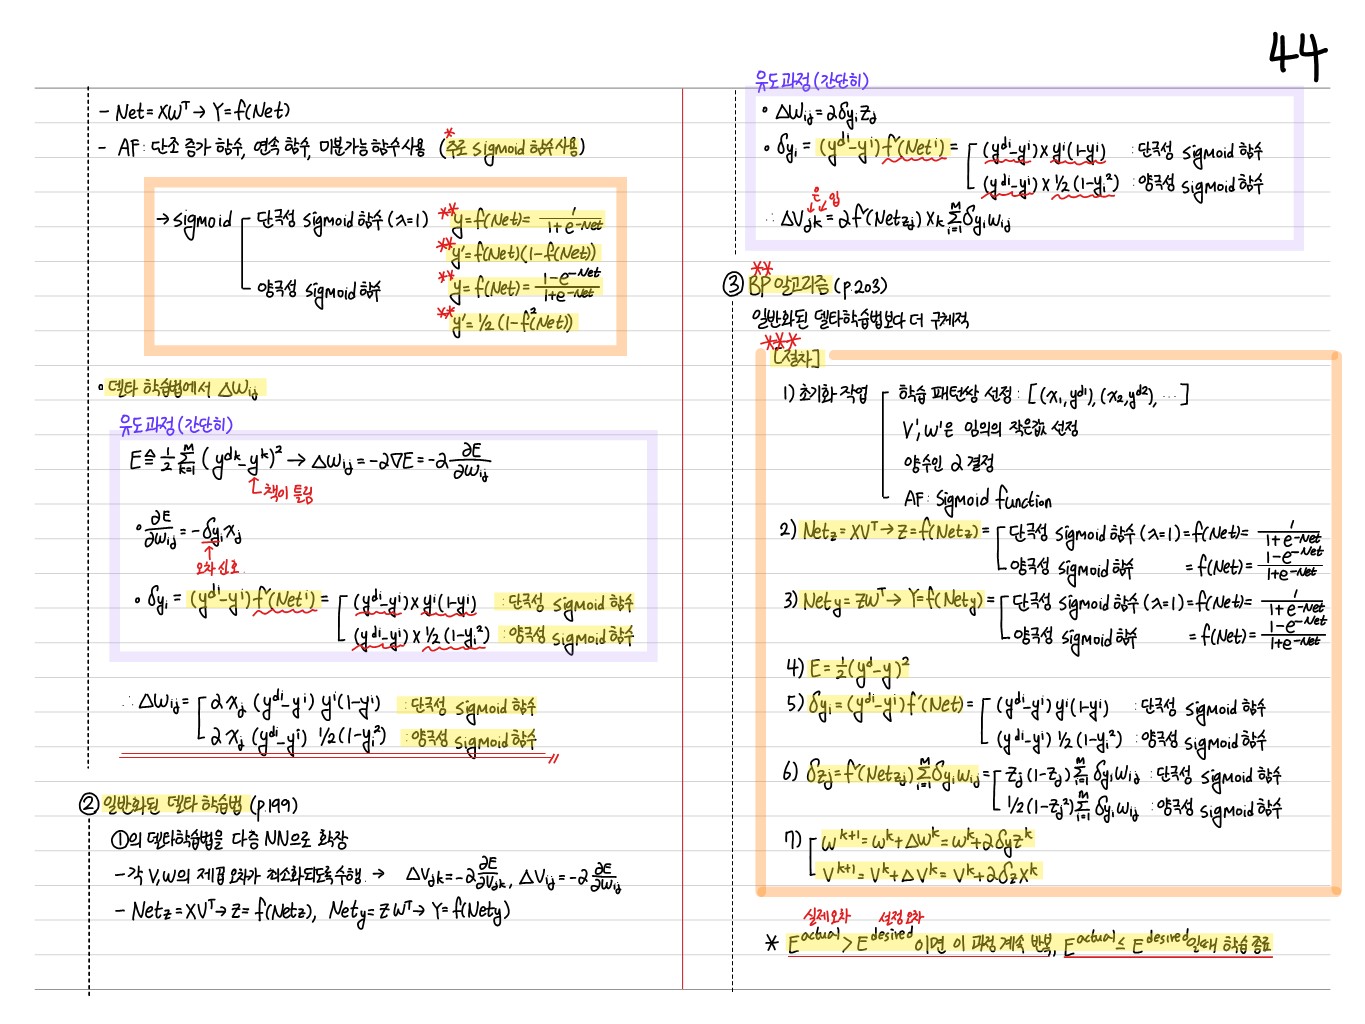 44
- Net = XWᵀ → Y = f(Net)
- AF : 단조 증가 함수, 연속 함수, 미분가능 함수 사용 (*주로 sigmoid 함수 사용)
→ sigmoid 단극성 sigmoid 함수 (λ=1) ** y = f(Net) = 1/(1+e^-Net)
** y' = f(Net)(1-f(Net))
양극성 sigmoid 함수 ** y = f(Net) = (1-e^-Net)/(1+e^-Net)
** y' = 1/2 (1-f²(Net))
• 델타 학습법에서 ΔWij
유도과정 (간단히)
E ≙ 1/2 Σ(k=1, M) (y^dk - y^k)² → ΔWij = -2∇E = -2 ∂E/∂Wij
↑ 책이 틀림
• ∂E/∂Wij = -δyi xj
↑ 오차 신호
• δyi = (y^di - y^i) f'(Net^i) = (y^di - y^i) × y^i(1-y^i) : 단극성 sigmoid 함수
(y^di - y^i) × 1/2 (1-yi²) : 양극성 sigmoid 함수
∴ ΔWij = 2 xj (y^di - y^i) y^i(1-y^i) : 단극성 sigmoid 함수
2 xj (y^di - y^i) 1/2 (1-yi²) : 양극성 sigmoid 함수 //
② 일반화된 델타 학습법 (p.199)
①의 델타학습법을 다층 NN으로 확장
- 각 V, W의 제곱 오차가 최소화되도록 수행 → ΔVjk = -2 ∂E/∂Vjk, ΔVij = -2 ∂E/∂Wij
- Netz = XVᵀ → Z = f(Netz), Nety = ZWᵀ → Y = f(Nety)
유도과정 (간단히)
• ΔWij = 2δyi zj
• δyi = (y^di - y^i) f'(Net^i) = (y^di - y^i) × y^i(1-y^i) : 단극성 sigmoid 함수
(y^di - y^i) × 1/2 (1-yi²) : 양극성 sigmoid 함수
은 입
∴ ΔVjk = 2 f'(Netzj) Xk Σ(i=1, M) δyi wij
③ ** BP 알고리즘 (p.203)
일반화된 델타학습법보다 더 구체적
*** [절차]
1) 초기화 작업 학습 패턴쌍 선정 : [(x1, y^d1), (x2, y^d2), ...]
V', W'은 임의의 작은값 선정
양수인 2 결정
AF : sigmoid function
2) Netz = XVᵀ → Z = f(Netz) = 단극성 sigmoid 함수 (λ=1) = f(Net) = 1/(1+e^-Net)
양극성 sigmoid 함수 = f(Net) = (1-e^-Net)/(1+e^-Net)
3) Nety = ZWᵀ → Y = f(Nety) = 단극성 sigmoid 함수 (λ=1) = f(Net) = 1/(1+e^-Net)
양극성 sigmoid 함수 = f(Net) = (1-e^-Net)/(1+e^-Net)
4) E = 1/2 (y^d - y)²
5) δyi = (y^di - y^i) f'(Net) = (y^di - y^i) y^i(1-y^i) : 단극성 sigmoid 함수
(y^di - y^i) 1/2 (1-yi²) : 양극성 sigmoid 함수
6) δzj = f'(Netzj) Σ(i=1, M) δyi wij = zj (1-zj) Σ(i=1, M) δyi wij : 단극성 sigmoid 함수
1/2 (1-zj²) Σ(i=1, M) δyi wij : 양극성 sigmoid 함수
7) W^k+1 = W^k + ΔW^k = W^k + 2δy z^k
V^k+1 = V^k + ΔV^k = V^k + 2δz X^k
실제 오차 선정 오차
* E^actual > E^desired 이면 이 과정 계속 반복, E^actual ≤ E^desired 일때 학습 종료